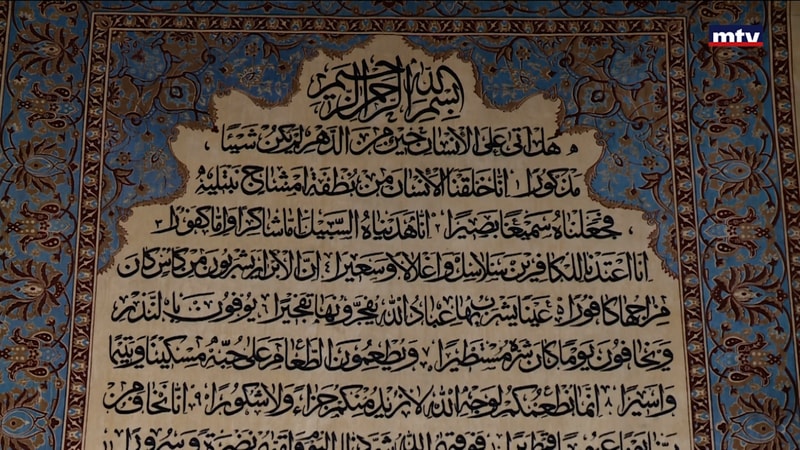 mtv
بسم الله الرحمن الرحيم
هل اتى على الانسان حين من الدهر لم يكن شيئا
مذكورا ١ انا خلقنا الانسان من نطفة امشاج نبتليه
فجعلناه سميعا بصيرا ٢ انا هديناه السبيل اما شاكرا واما كفورا ٣
انا اعتدنا للكافرين سلاسل واغلالا وسعيرا ٤ ان الابرار يشربون من كاس كان
مزاجها كافورا ٥ عينا يشرب بها عباد الله يفجرونها تفجيرا ٦ يوفون بالنذر
ويخافون يوما كان شره مستطيرا ٧ ويطعمون الطعام على حبه مسكينا ويتيما
واسيرا ٨ انما نطعمكم لوجه الله لا نريد منكم جزاء ولا شكورا ٩ انا نخاف من
ربنا يوما عبوسا قمطريرا فوقيهم الله شر ذلك اليوم ولقيهم نضرة وسرورا